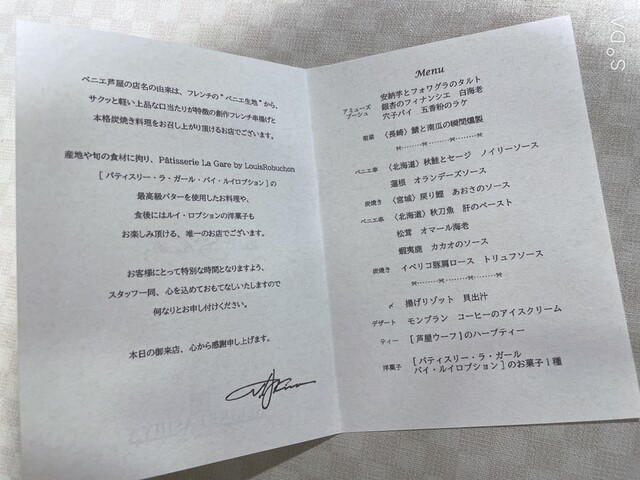 ベニエ芦屋の店名の由来は、フレンチの"ベニエ生地"から、
サクッと軽い上品な口当たりが特徴の創作フレンチ串揚げと
本格炭焼き料理をお召し上がり頂けるお店でございます。
産地や旬の食材に拘り、Pâtisserie La Gare by LouisRobuchon
[パティスリー・ラ・ガール・バイ・ルイロブション]の
最高級バターを使用したお料理や、
食後にはルイ・ロブションの洋菓子も
お楽しみ頂ける、唯一のお店でございます。
お客様にとって特別な時間となりますよう、
スタッフ一同、心を込めておもてなしいたしますので
何なりとお申し付けください。
本日の御来店、心から感謝申し上げます。
Menu
アミューズ ブーシュ
安納芋とフォワグラのタルト
銀杏のフィナンシエ 白海老
穴子パイ 五香粉のラケ
前菜 〈長崎〉鯖と南瓜の瞬間燻製
ベニエ串 〈北海道〉秋鮭とセージ ノイリーソース
蓮根 オランデーズソース
炭焼き 〈宮城〉戻り鰹 あおさのソース
ベニエ串 〈北海道〉秋刀魚 肝のペースト
松茸 オマール海老
蝦夷鹿 カカオのソース
炭焼き イベリコ豚肩ロース トリュフソース
〆 揚げリゾット 貝出汁
デザート モンブラン コーヒーのアイスクリーム
ティー [芦屋ウーフ]のハーブティー
洋菓子 [パティスリー・ラ・ガール
バイ・ルイロブション]のお菓子1種
SODA